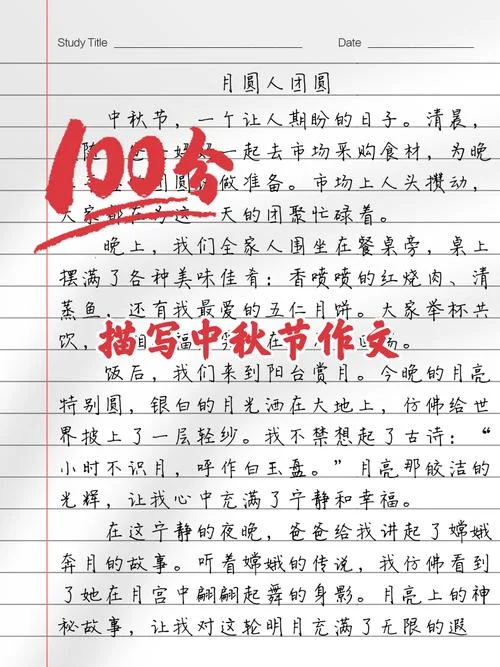 Study Title
Date
月圆人团圆
中秋节，一个让人期盼的日子。清晨，
一起去市场采购食材，为晚
团圆 做准备。市场上人头攒动，
大家都在为这一天的团聚忙碌着。
100分
晚上，我们全家人围坐在餐桌旁，桌上
摆满了各种美味佳肴：香喷喷的红烧肉、清
蒸鱼，还有我最爱的五仁月饼。大家举杯共
饮，
描写中秋节作文
饭后，我们来到阳台赏月。今晚的月亮
特别圆，银白的月光洒在大地上，仿佛给世
界披上了一层轻纱。我不禁想起了古诗：“
小时不识月，呼作白玉盘。”月亮那皎洁的
光辉，让我心中充满了宁静和幸福。
在这宁静的夜晚，爸爸给我讲起了嫦娥
奔月的故事。听着嫦娥的传说，我仿佛看到
了她在月宫中翩翩起舞的身影。月亮上的神
秘故事，让我对这轮明月充满了无限的遐